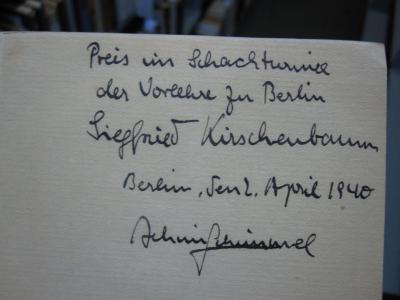 Preis im Schachturnier
der Vorlehre zu Berlin
Siegfried Kirschenbaum
Berlin, den 2. April 1940